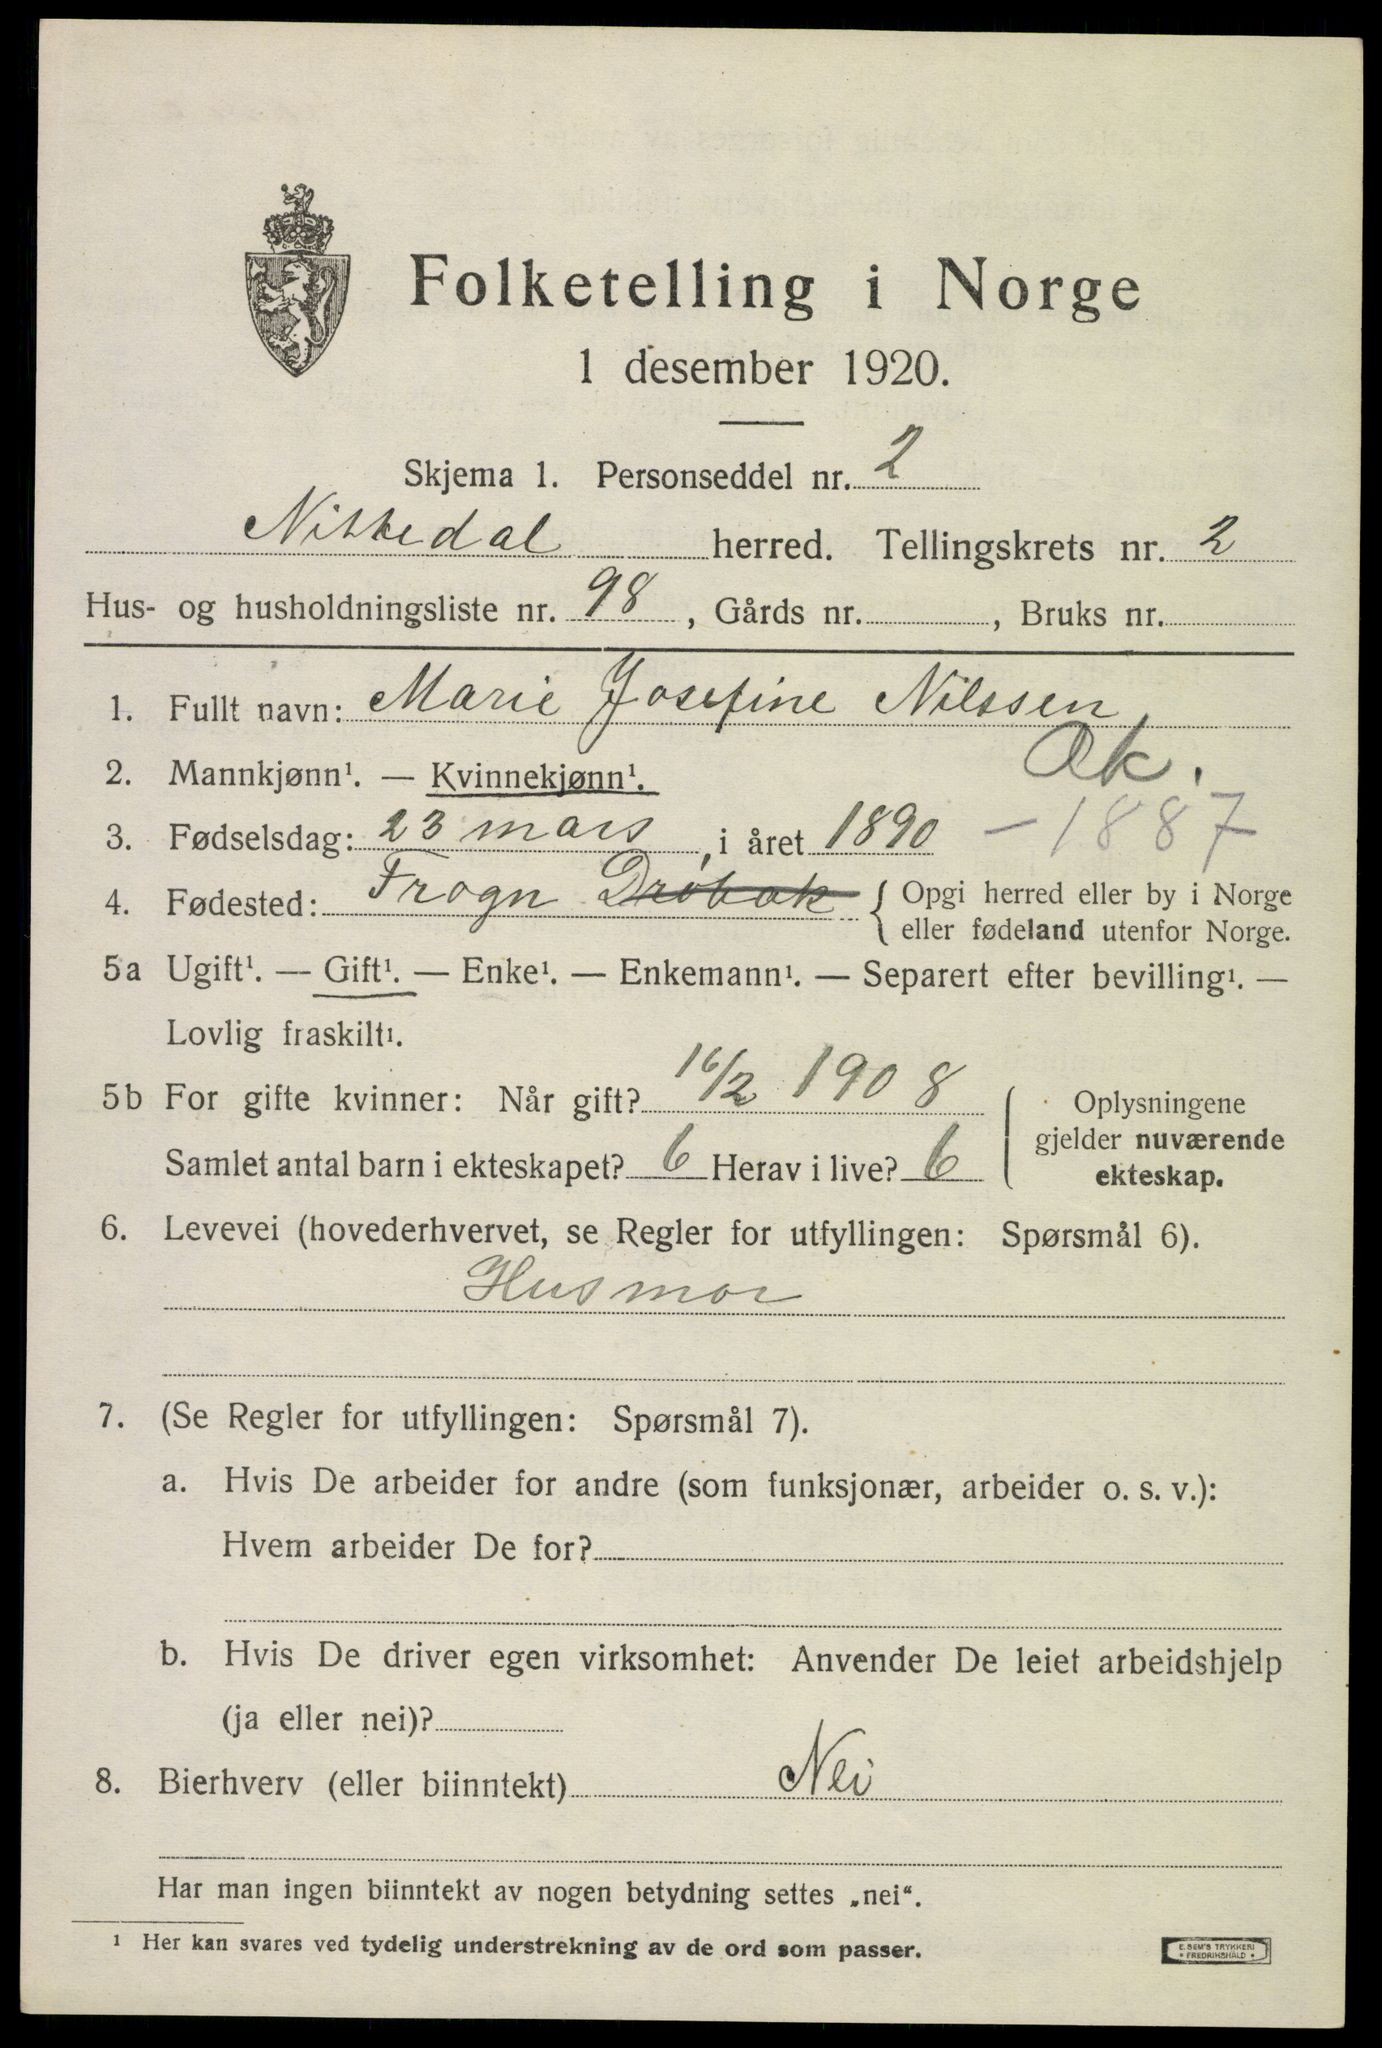 Folketelling i Norge
1 desember 1920.
Skjema 1. Personseddel nr. 2
Nittedal herred. Tellingskrets nr. 2
Hus- og husholdningsliste nr. 98, Gårds nr. , Bruks nr.
1. Fullt navn: Marie Josefine Nilssen,
2. Mannkjønn¹. — Kvinnekjønn¹. Ak.
3. Fødselsdag: 23 mars, i året 1890 - 1887
4. Fødested: Frogn Drøbak { Opgi herred eller by i Norge
eller fødeland utenfor Norge.
5a Ugift¹. — Gift¹. — Enke¹. — Enkemann¹. — Separert efter bevilling¹. —
Lovlig fraskilt¹.
5b For gifte kvinner: Når gift? 16/2 1908
Samlet antal barn i ekteskapet? 6 Herav i live? 6
( Oplysningene
gjelder nuværende
ekteskap.
6. Levevei (hovederhvervet, se Regler for utfyllingen: Spørsmål 6).
Husmor
7. (Se Regler for utfyllingen: Spørsmål 7).
a. Hvis De arbeider for andre (som funksjonær, arbeider o. s. v.):
Hvem arbeider De for?
b. Hvis De driver egen virksomhet: Anvender De leiet arbeidshjelp
(ja eller nei)?
8. Bierhverv (eller biinntekt) Nei
Har man ingen biinntekt av nogen betydning settes „nei“.
¹ Her kan svares ved tydelig understrekning av de ord som passer.
E. SEM'S TRYKKERI
• FREDRIKSHALD •